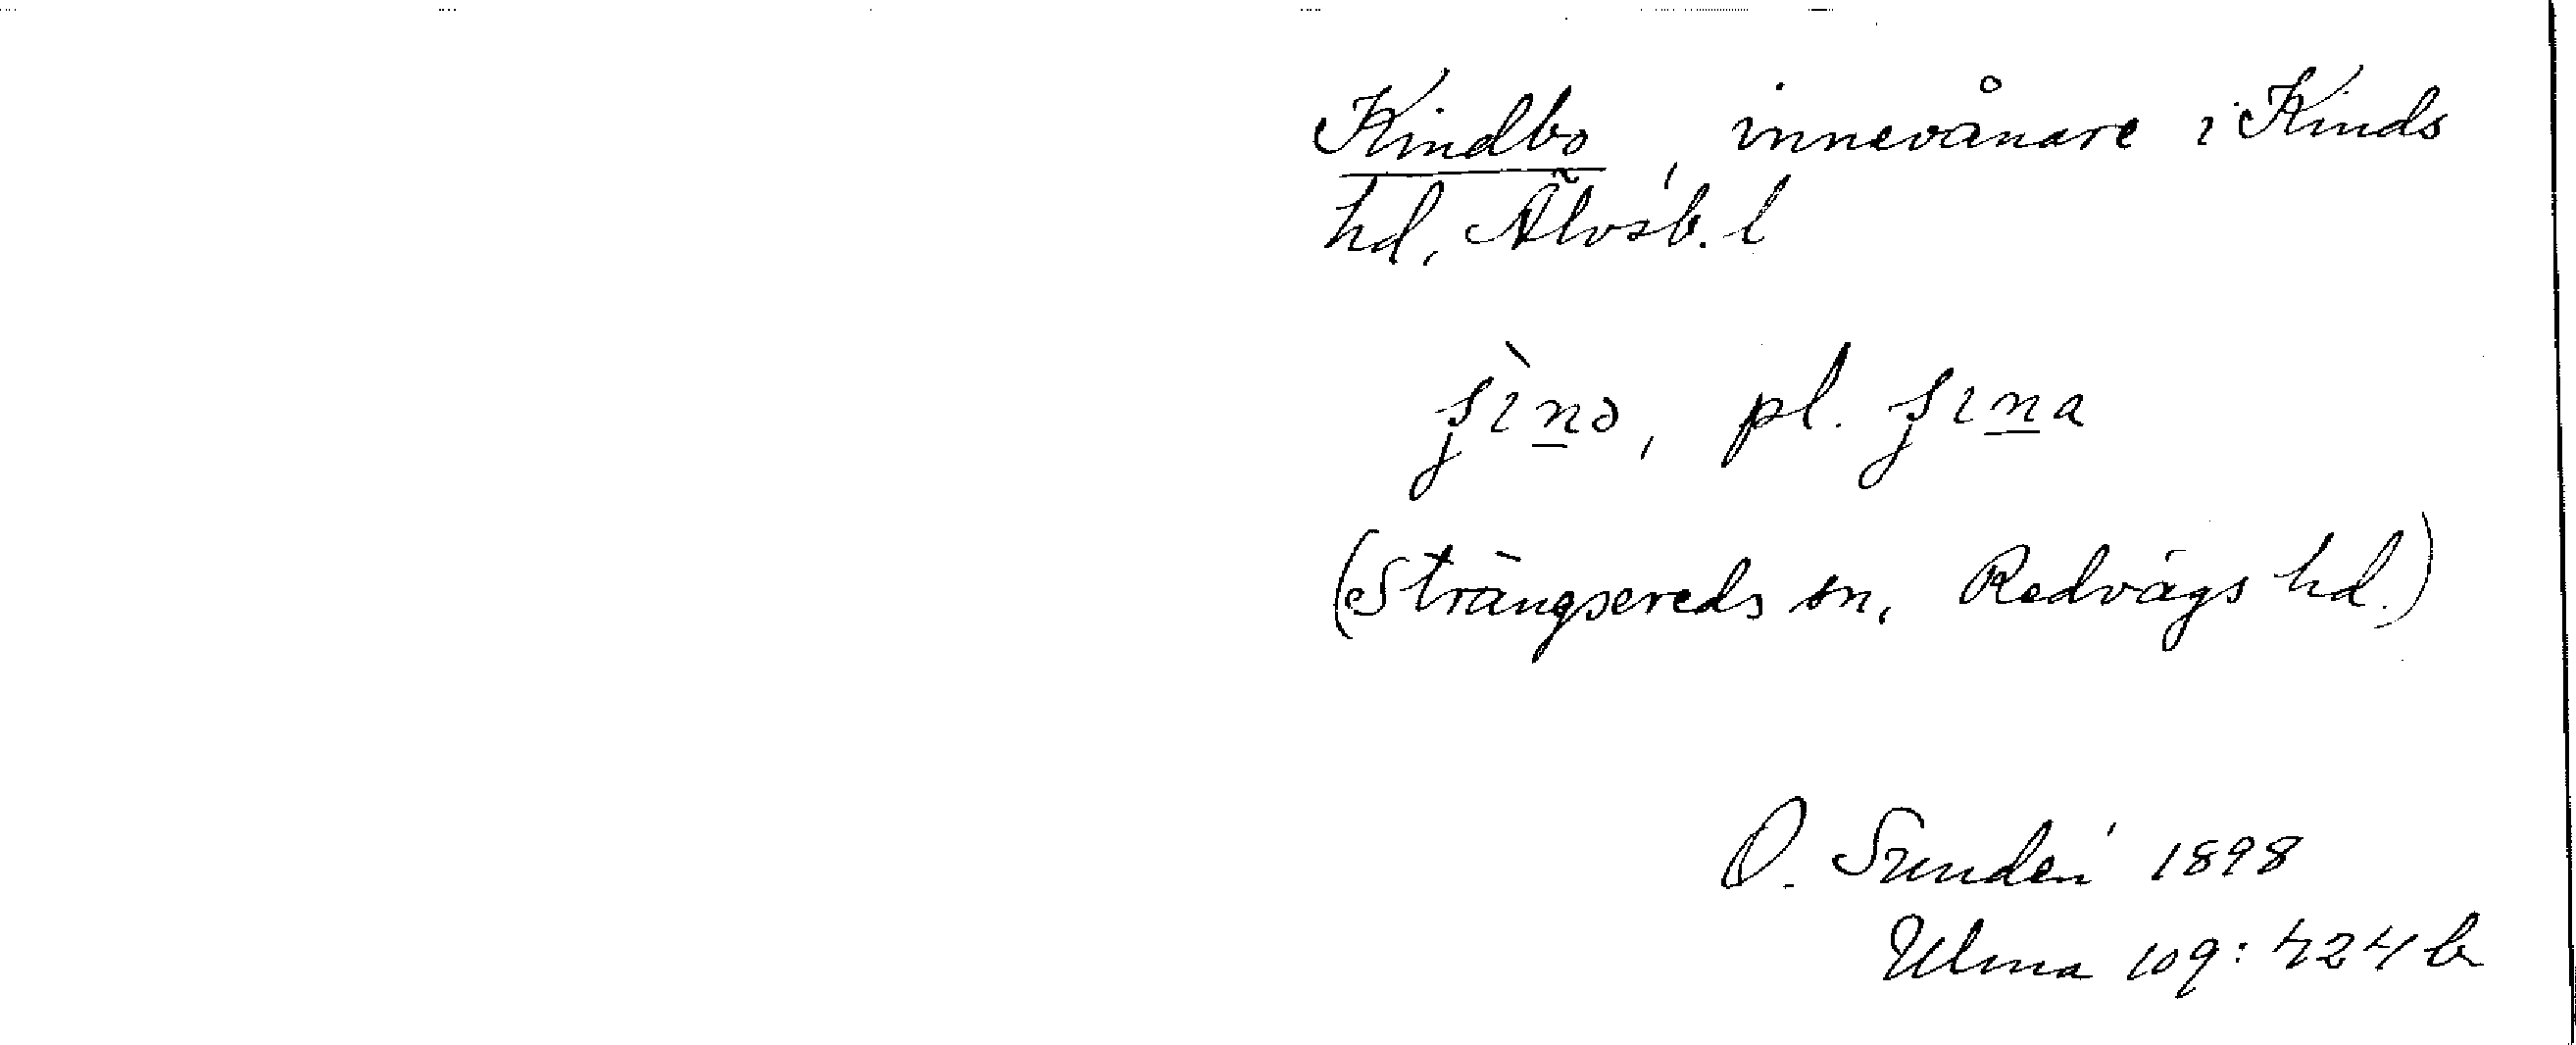 Kindbo, innevånare i Kinds
hd, Älvsb. l
pl.
(Strängsereds sn, Redvägs hd.)
O. Sundén 1898
Ulma 109: 424 b